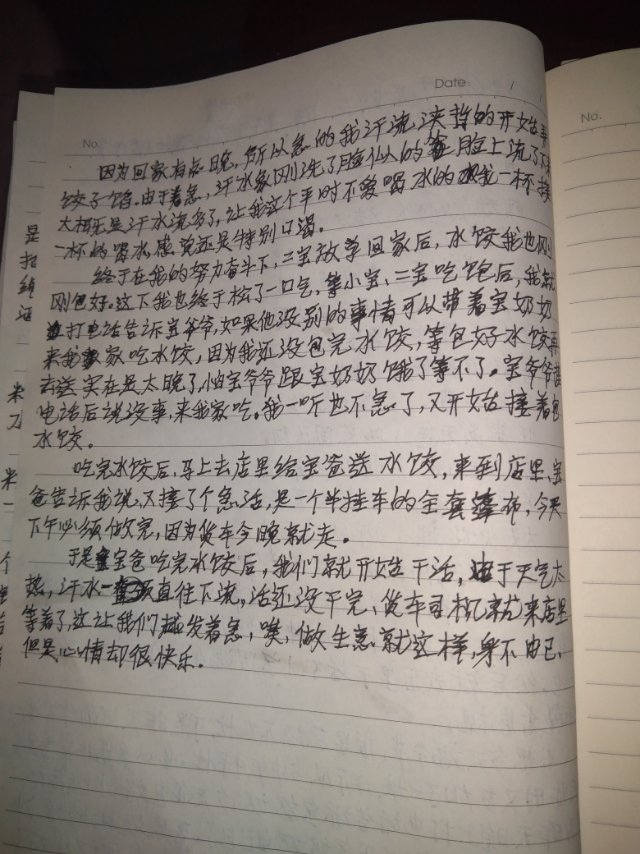 Date: / /
No.
No.
因为回家有点晚,所以急的我汗流浃背的开始弄
饺子馅。由于着急,汗水象刚洗了脸似的从脸上流了下来
太概是汗水流多了,让我这个平时不爱喝水的我一杯接
一杯的喝水,感觉还是特别口渴。
终于在我的努力奋斗下,二宝放学回家后,水饺我也刚
刚包好。这下我也终于松了一口气,等小宝、二宝吃饱后,我就
打电话告诉宝爷爷,如果他没别的事情可以带着宝奶奶
来我家吃水饺,因为我还没包完水饺,等包好水饺再
去送实在是太晚了,怕宝爷爷跟宝奶奶饿了等不了。宝爷爷接
电话后说没事,来我家吃。我一听也不急了,又开始接着包
水饺。
吃完水饺后,马上去店里给宝爸送水饺,来到店里,宝
爸告诉我说,又接了个急活,是一个半挂车的全套篷布,今天
下午必须做完,因为货车今晚就走。
于是宝爸吃完水饺后,我们就开始干活,由于天气太
热,汗水一直往下流,活还没干完、货车司机就来店里
等着了,这让我们越发着急,唉,做生意就这样,身不由己、
但是心情却很快乐。